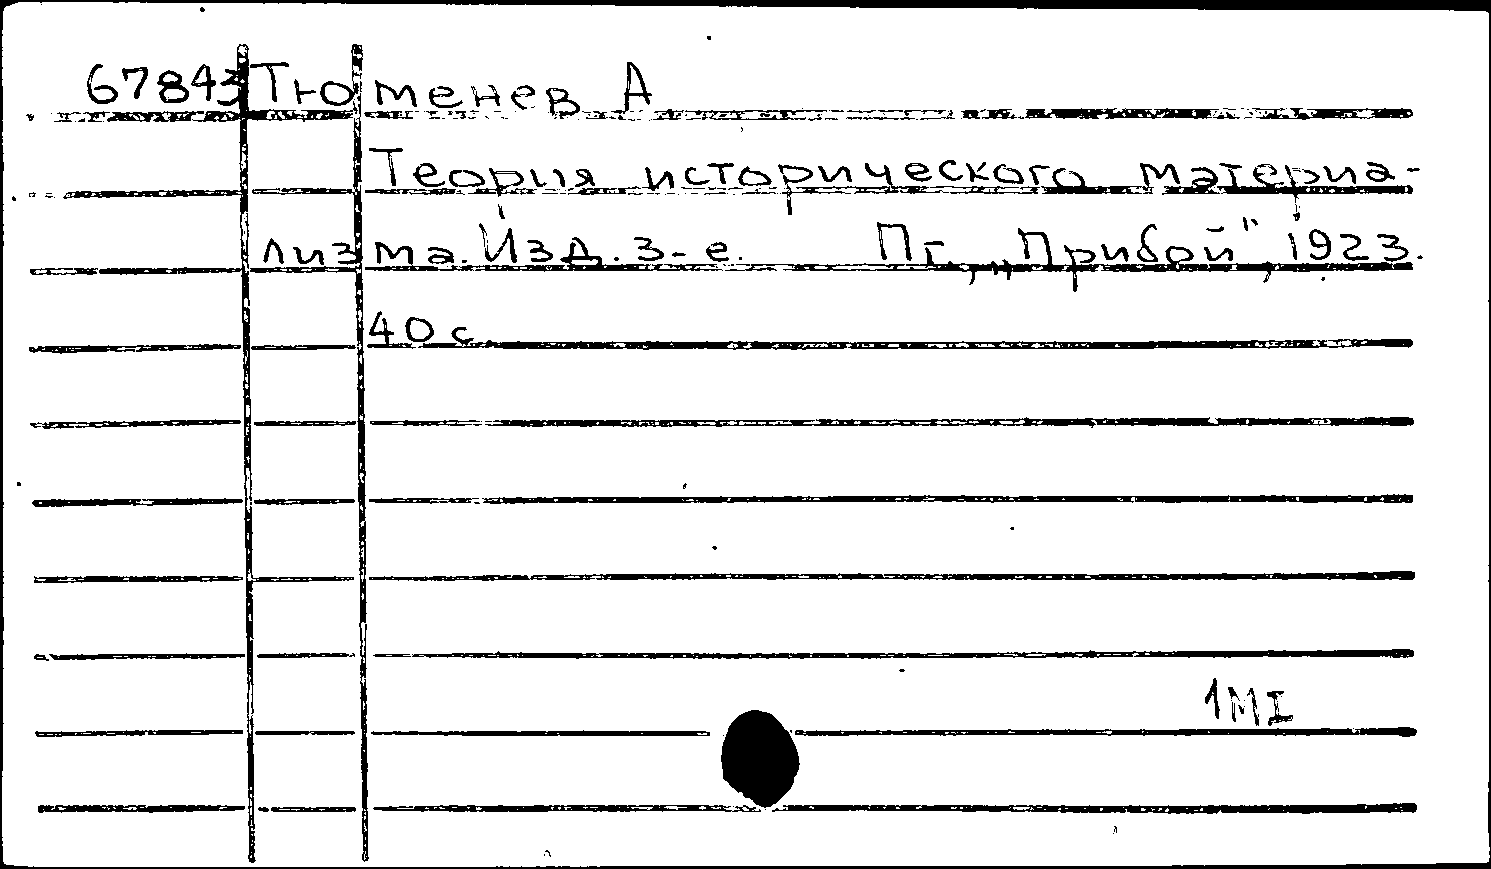 67843 Тюменев А
Теория исторического материа-
лизма. Изд. 3-е. Пг., „Прибой", 1923.
40 с
1МI